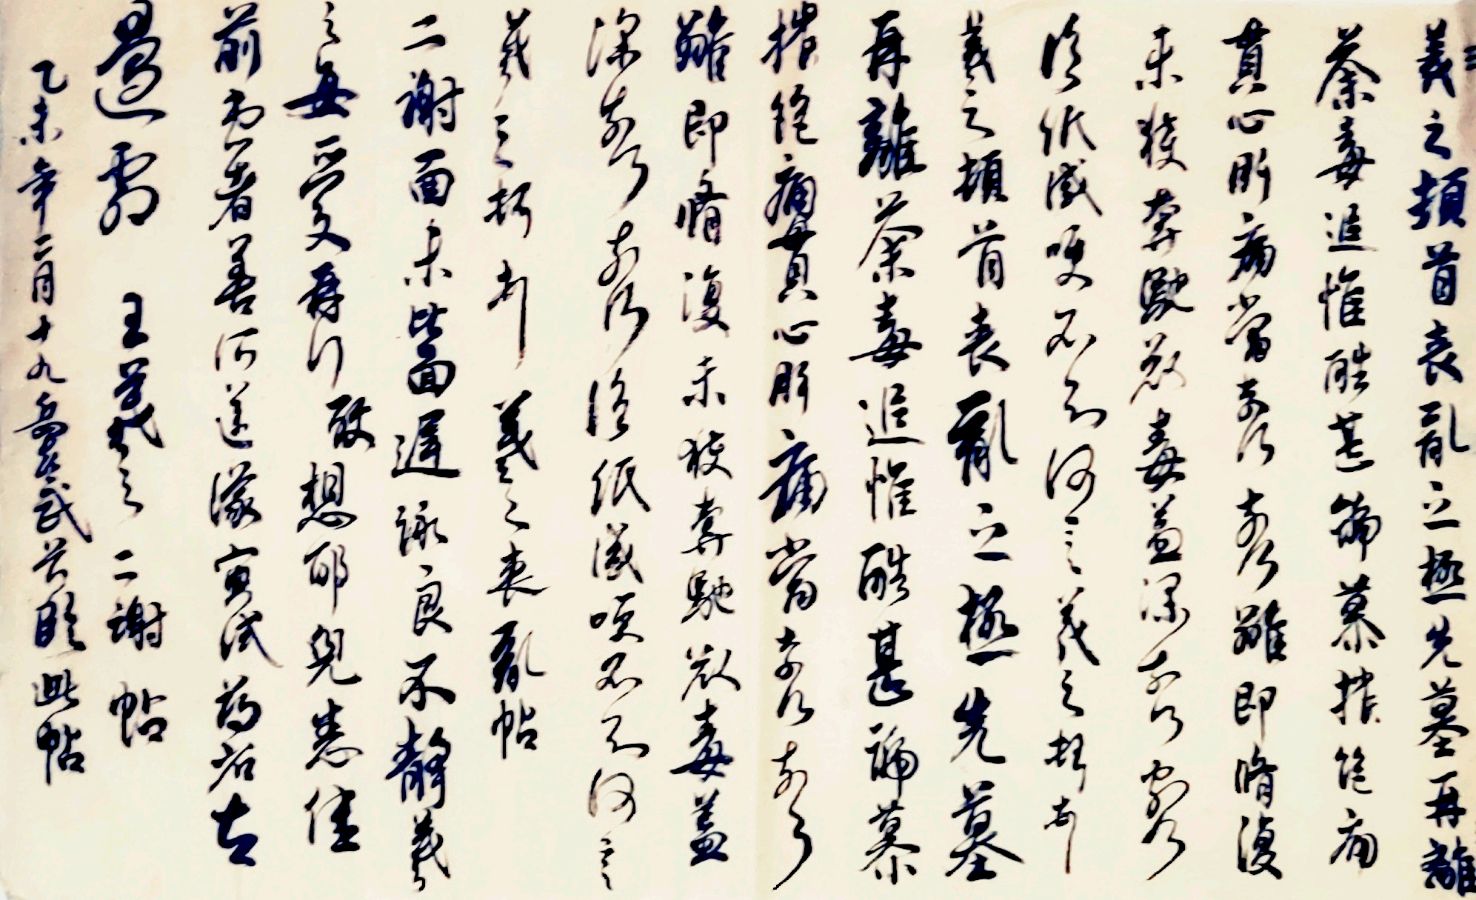 羲之頓首喪亂之極先墓再離
荼毒追惟酷甚號慕摧絕痛
貫心肝痛當奈何奈何雖即脩復
未獲奔馳哀毒益深奈何奈何
臨紙感哽不知何言羲之頓首
羲之頓首喪亂之極先墓
再離荼毒追惟酷甚號慕
摧絕痛貫心肝痛當奈何奈何
雖即脩復未獲奔馳哀毒益
深奈何奈何臨紙感哽不知何言
羲之頓首 羲之喪亂帖
二謝面未比面遲詠良不靜羲
之女愛再拜想邰兒悉佳
前患者善所送議當試尋省左
邊劇 王羲之二謝帖
乙未年二月十九臨此帖